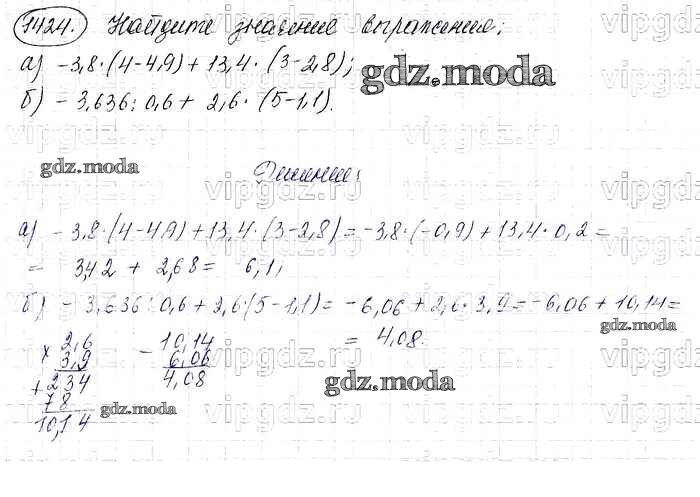 1424. Найдите значение выражения:
а) -3,8·(4-4,9)+13,4·(3-2,8);
б) -3,636:0,6+2,6·(5-1,1).
gdz.moda
gdz.moda
Решение:
а) -3,8·(4-4,9)+13,4·(3-2,8)=-3,8·(-0,9)+13,4·0,2=
= 3,42 + 2,68 = 6,1;
б) -3,636:0,6+2,6·(5-1,1)= -6,06+2,6·3,9=-6,06+10,14=
= 4,08.
gdz.moda
× 2,6
3,9
+ 234
78
10,14
- 10,14
6,06
4,08
gdz.moda
gdz.moda
vipgdz.ru